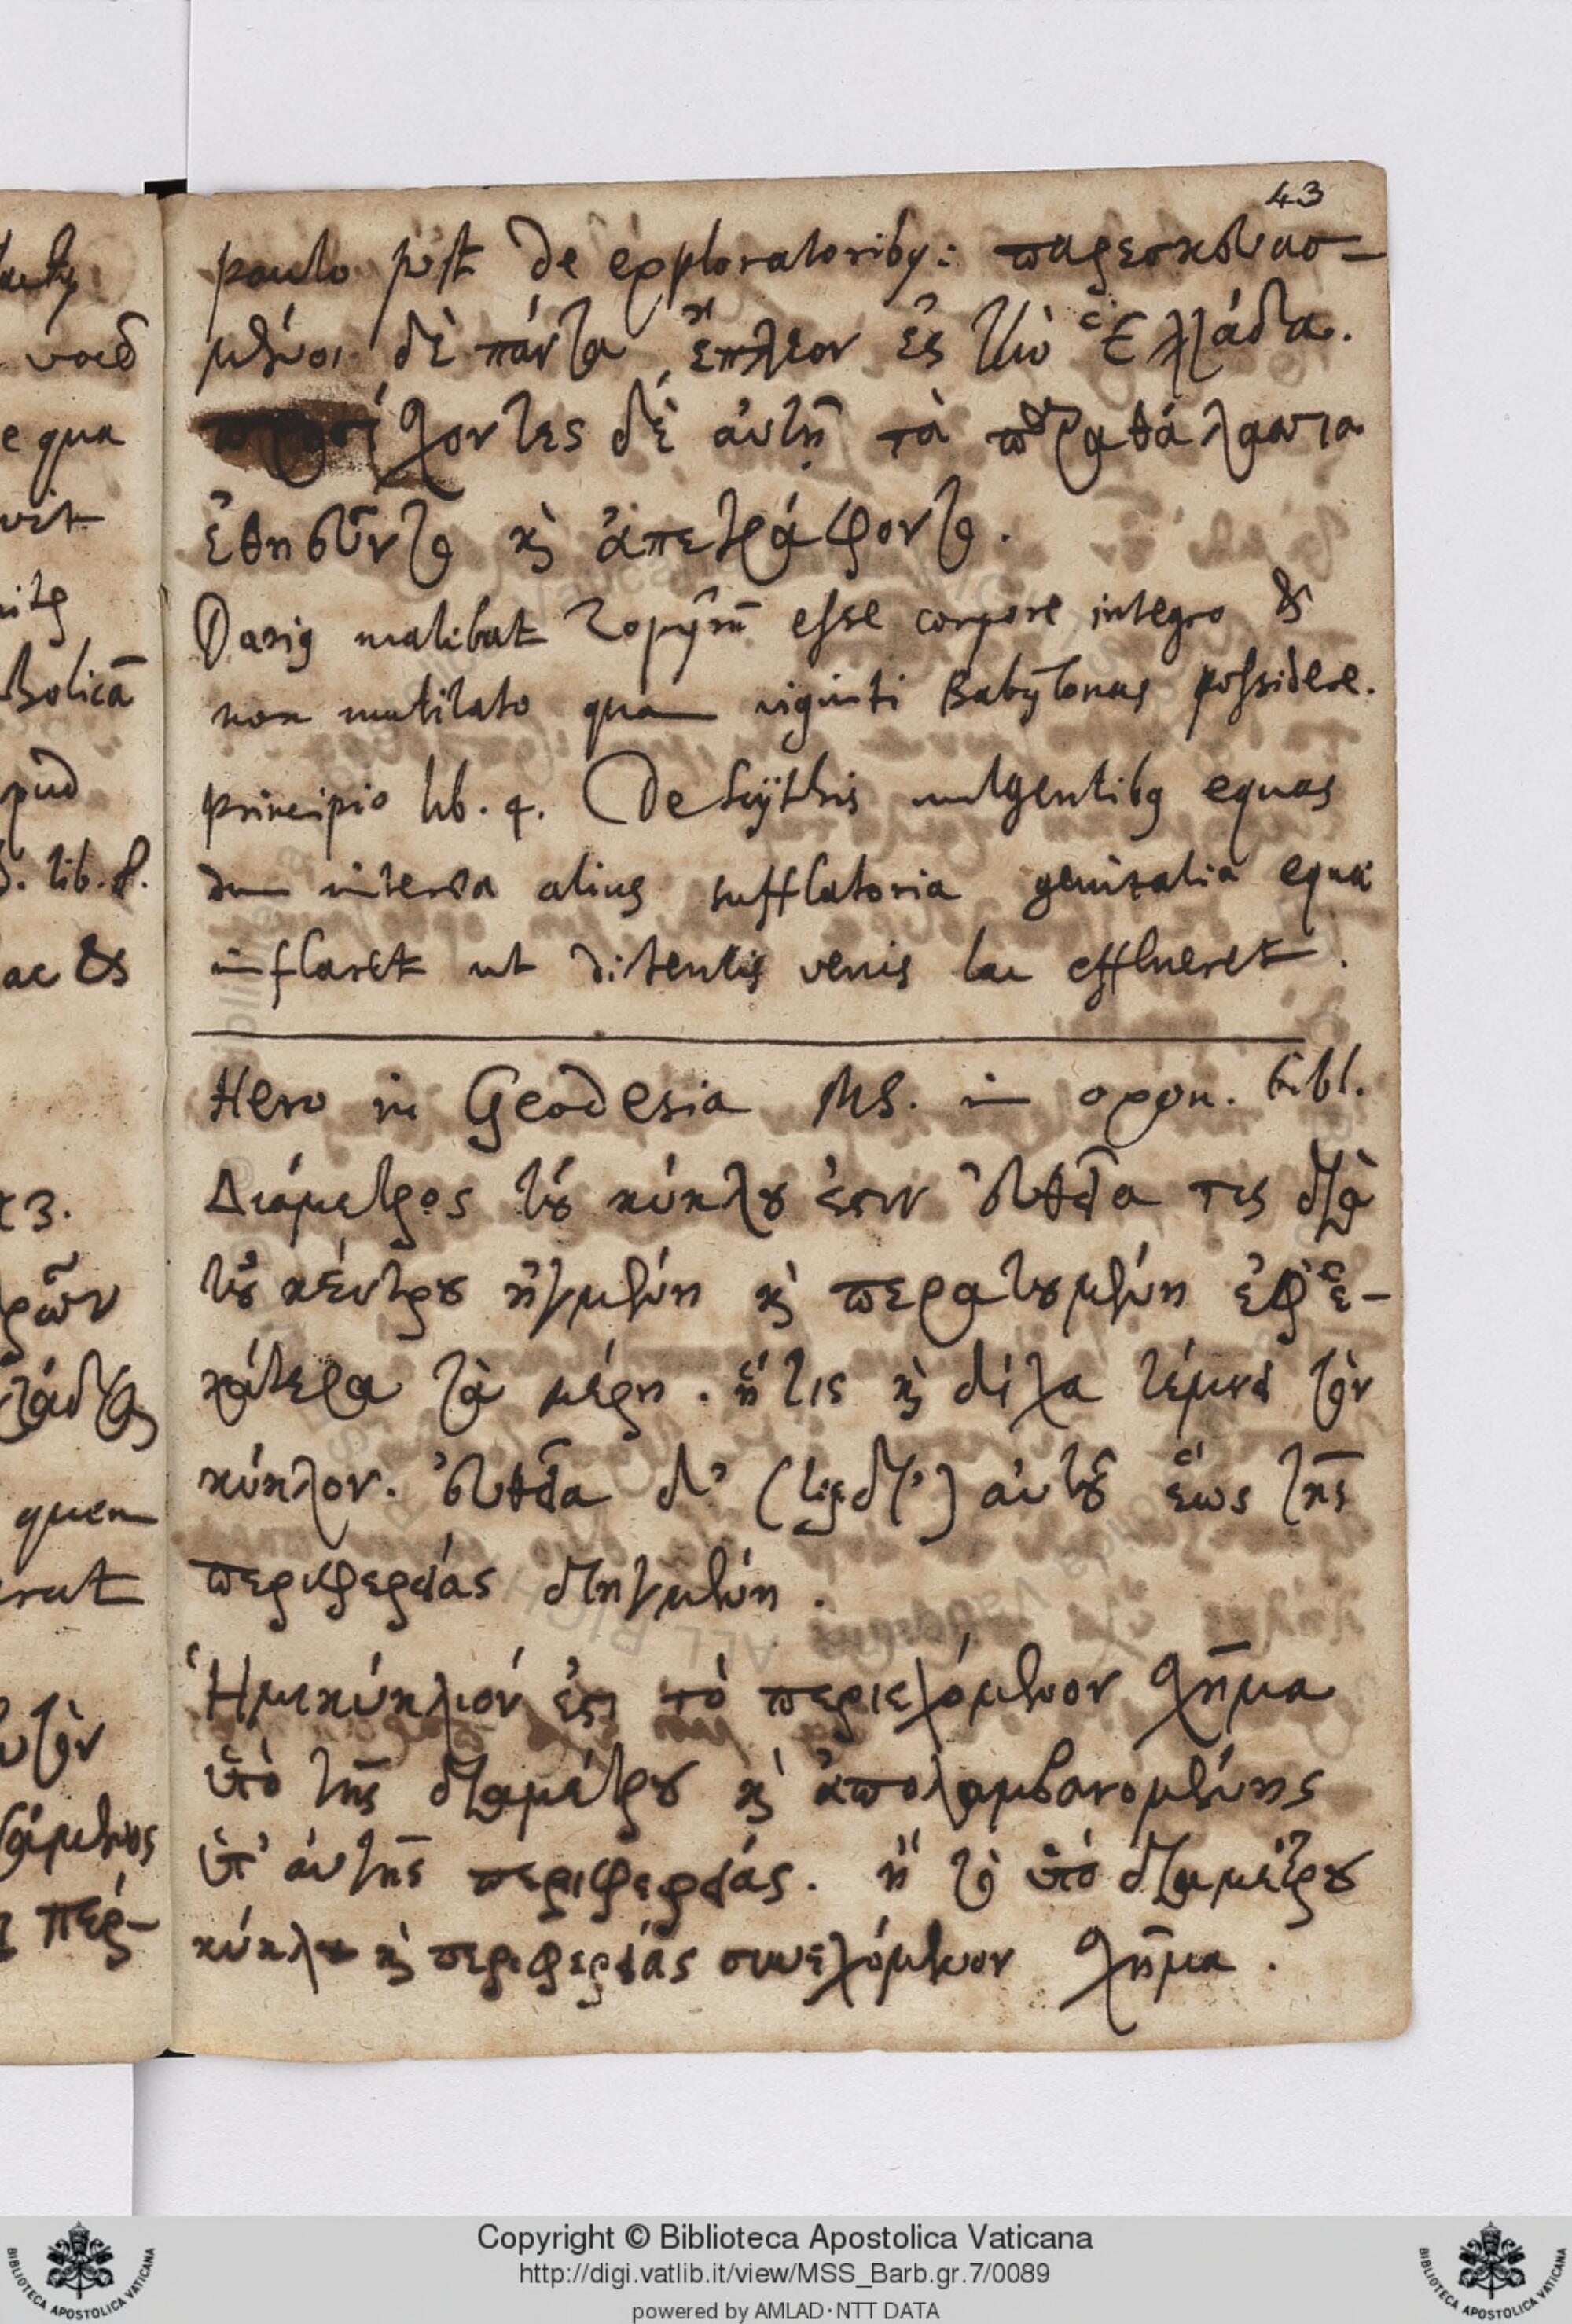 43
paulo post de exploratoribus: παρεσκευασ-
μένοι δὲ πάντα ἔπλεον ἐς τὴν Ἑλλάδα.
προσίχοντες δὲ αὐτῆς τὰ παραθάλασσια
ἐθηεῦντο καὶ ἀπεγράφοντο.
Darius malebat Zopyrum esse corpore integro &
non mutilato quam viginti Babylonas possidere.
principio lib. 4. De Scythis mulgentibus equas
dum interea alius sufflatoria genitalia equae
inflaret ut distentis venis lac efflueret.
Hero in Geodesia MS. in oxon. bibl.
Διάμετρος τοῦ κύκλου ἐστιν εὐθεῖα τις διὰ
τοῦ κέντρου ἠγμένη καὶ περατουμένη ἐφ' ἑ-
κάτερα τὰ μέρη. ἥτις καὶ δίχα τέμνει τὸν
κύκλον. εὐθεῖα δι' ( ) αὐτοῦ ἕως τῆς
περιφερείας διηγμένη.
Ἡμικύκλιόν ἐστι τὸ περιεχόμενον σχῆμα
ὑπὸ τῆς διαμέτρου καὶ ἀπολαμβανομένης
ὑπ' αὐτῆς περιφερείας. ἢ τὸ ὑπὸ διαμέτρου
κύκλου καὶ περιφερείας συνεχόμενον σχῆμα.
Copyright © Biblioteca Apostolica Vaticana
http://digi.vatlib.it/view/MSS_Barb.gr.7/0089
powered by AMLAD·NTT DATA
BIBLIOTECA APOSTOLICA VATICANA
BIBLIOTECA APOSTOLICA VATICANA